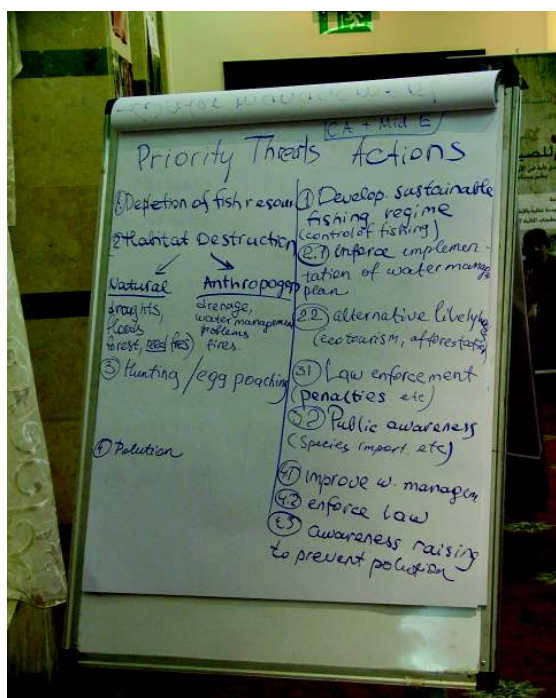 CA + Mid E
Priority Threats
① Depletion of fish resour
2 Habitat Destruction
Natural
draughts,
floods
forest, reed fires)
Anthropogen
drenage,
water managemen
problems
fires.
③ Hunting / egg poaching
④ Polution
Actions
① Develop. sustainable
fishing regime
(control of fishing)
2.1 inforce implemen-
tation of water manage
plan
2.2 alternative
(ecotourism, afforestation)
3.1 Law enforcement
(penalties etc)
3.2 Public awareness
(Species import. etc)
4.1 improve w. managem
4.2 enforce law
4.3 awareness raising
to prevent polution